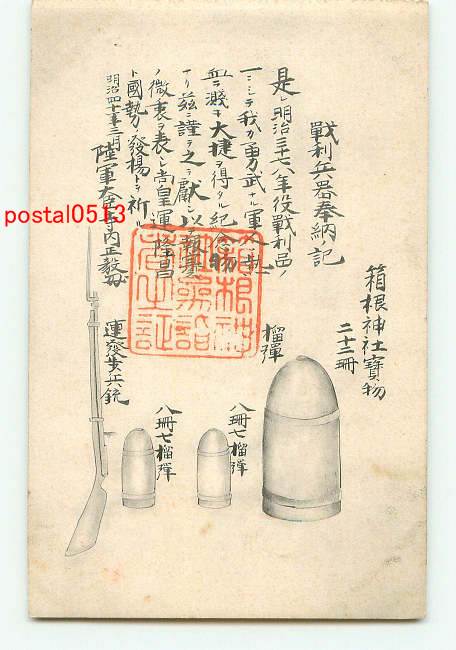 箱根神社寶物
二十二冊
榴彈
戰利兵器奉納ノ記
是レ明治三十七八年役戰利品ノ
一ニシテ我カ勇武ナル軍人
血ヲ濺キ大捷ヲ得タル紀念物
ナリ茲ニ謹テ之ヲ献シ以テ報賽
ノ微衷ヲ表シ尚皇運ノ隆昌
ト國勢ノ發揚トヲ祈ル
明治四十年三月
陸軍大臣寺内正毅
八珊七榴彈
八珊七榴彈
連發歩兵銃
postal0513